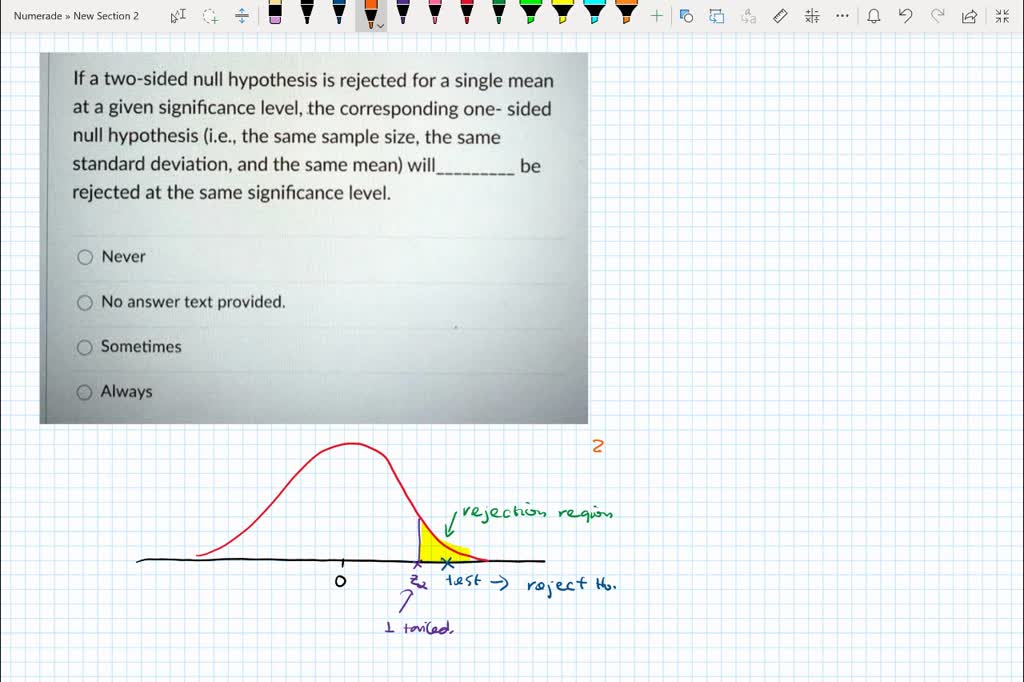 Numerade » New Section 2
If a two-sided null hypothesis is rejected for a single mean
at a given significance level, the corresponding one- sided
null hypothesis (i.e., the same sample size, the same
standard deviation, and the same mean) will_________ be
rejected at the same significance level.
Never
No answer text provided.
Sometimes
Always
2
rejection region
0
Zα test → reject H₀.
1 tailed.